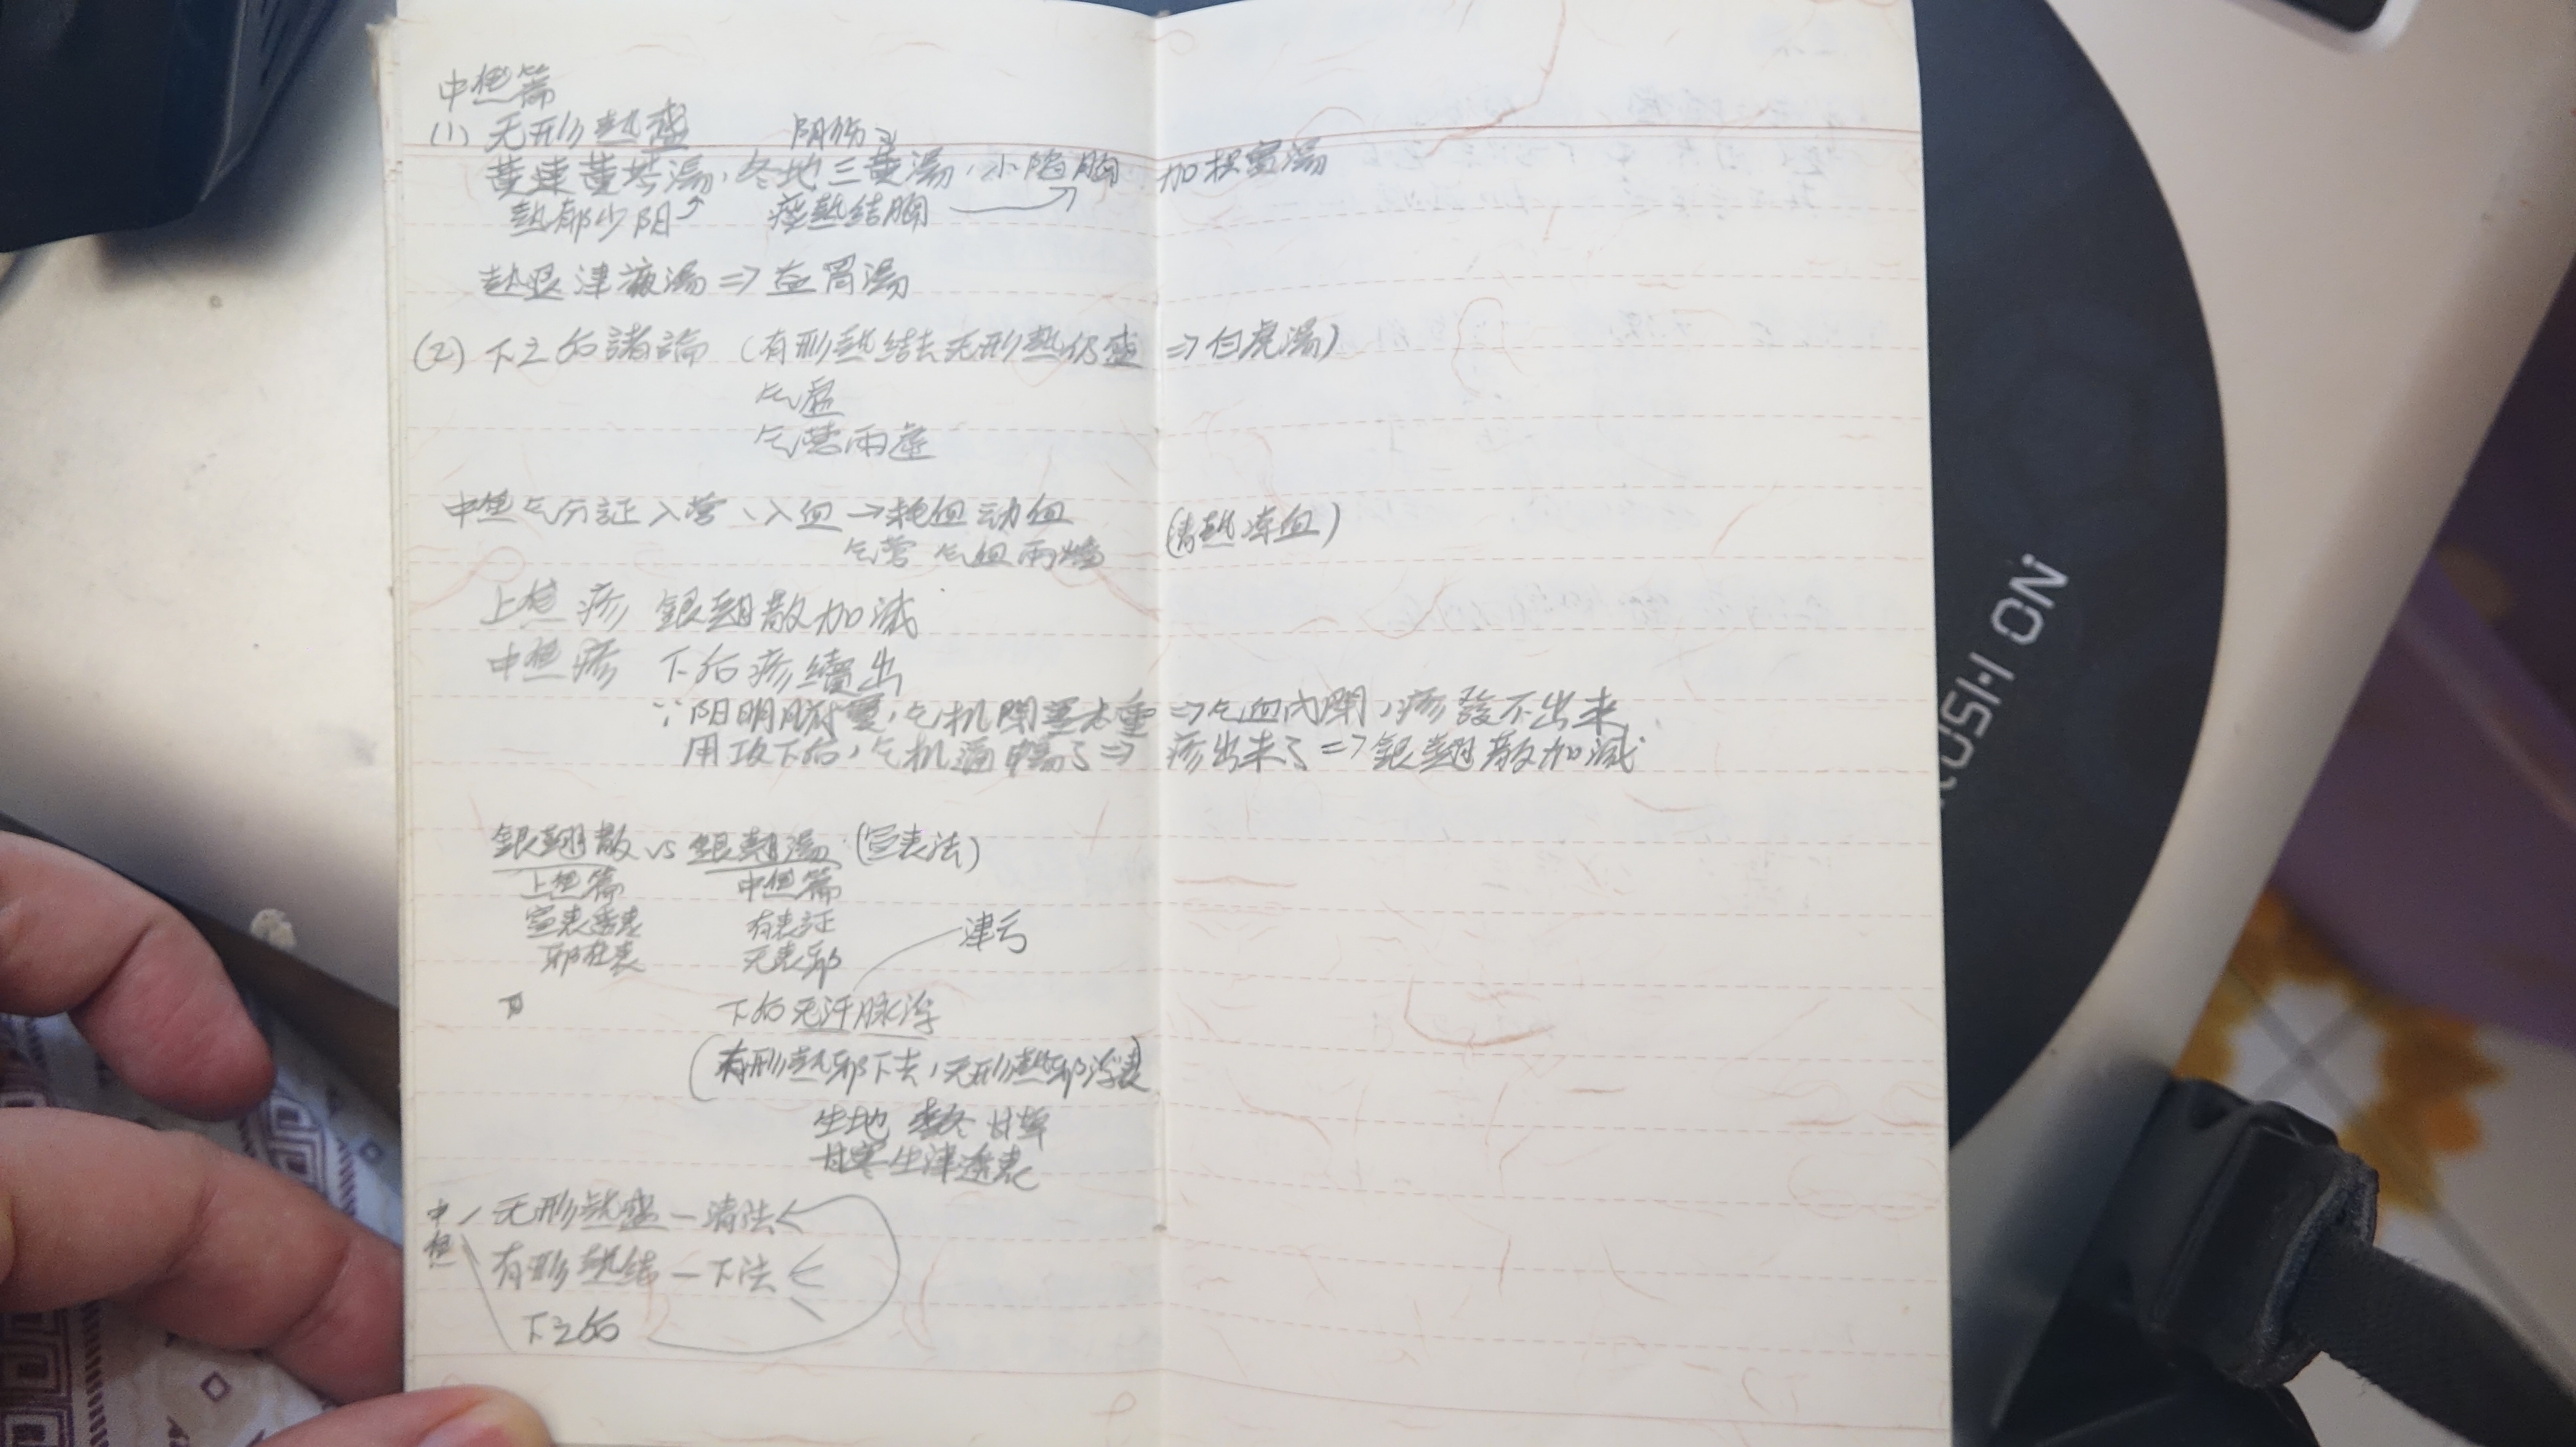 中焦篇
(1) 无形熱盛 阴伤
黃連黃芩湯、冬地三黃湯、小陷胸 加枳實湯
熱郁少阳 痰熱結胸
熱退津液湯 ⇒ 益胃湯
(2) 下之后諸論 (有形熱結去无形熱仍盛 ⇒ 白虎湯)
气虛
气营兩虛
中焦气分証入营、入血 → 耗血动血 (清熱凉血)
气营 气血兩燔
上焦 疹 銀翹散加減
中焦 疹 下后疹續出
∵阳明腑實,气机閉塞太重 ⇒ 气血內閉,疹發不出来
用攻下后,气机通暢了 ⇒ 疹出来了 ⇒ 銀翹散加減
銀翹散 vs 銀翹湯 (宣表法)
上焦篇 中焦篇
宣表透表 有表証
邪在表 无表邪
津亏
下后无汗脉浮
(有形熱邪下去,无形熱邪浮表
生地 麥冬 甘草
甘寒生津透表
中焦
无形熱盛 — 清法
有形熱結 — 下法
下之后
NO
PUSH ON